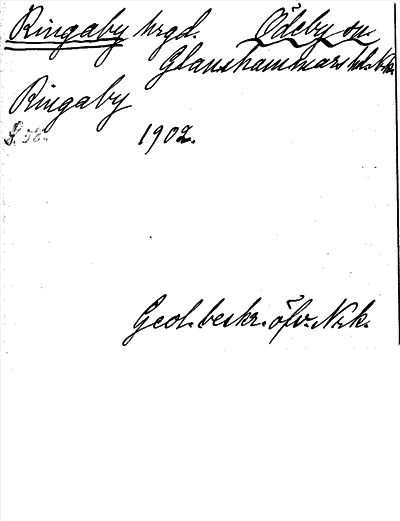 Ringaby hrgd. Ödeby sn.
Glanshammars hd. Nke.
Ringaby
S. 52. 1902.
Geol. beskr. öfv. Nrk.